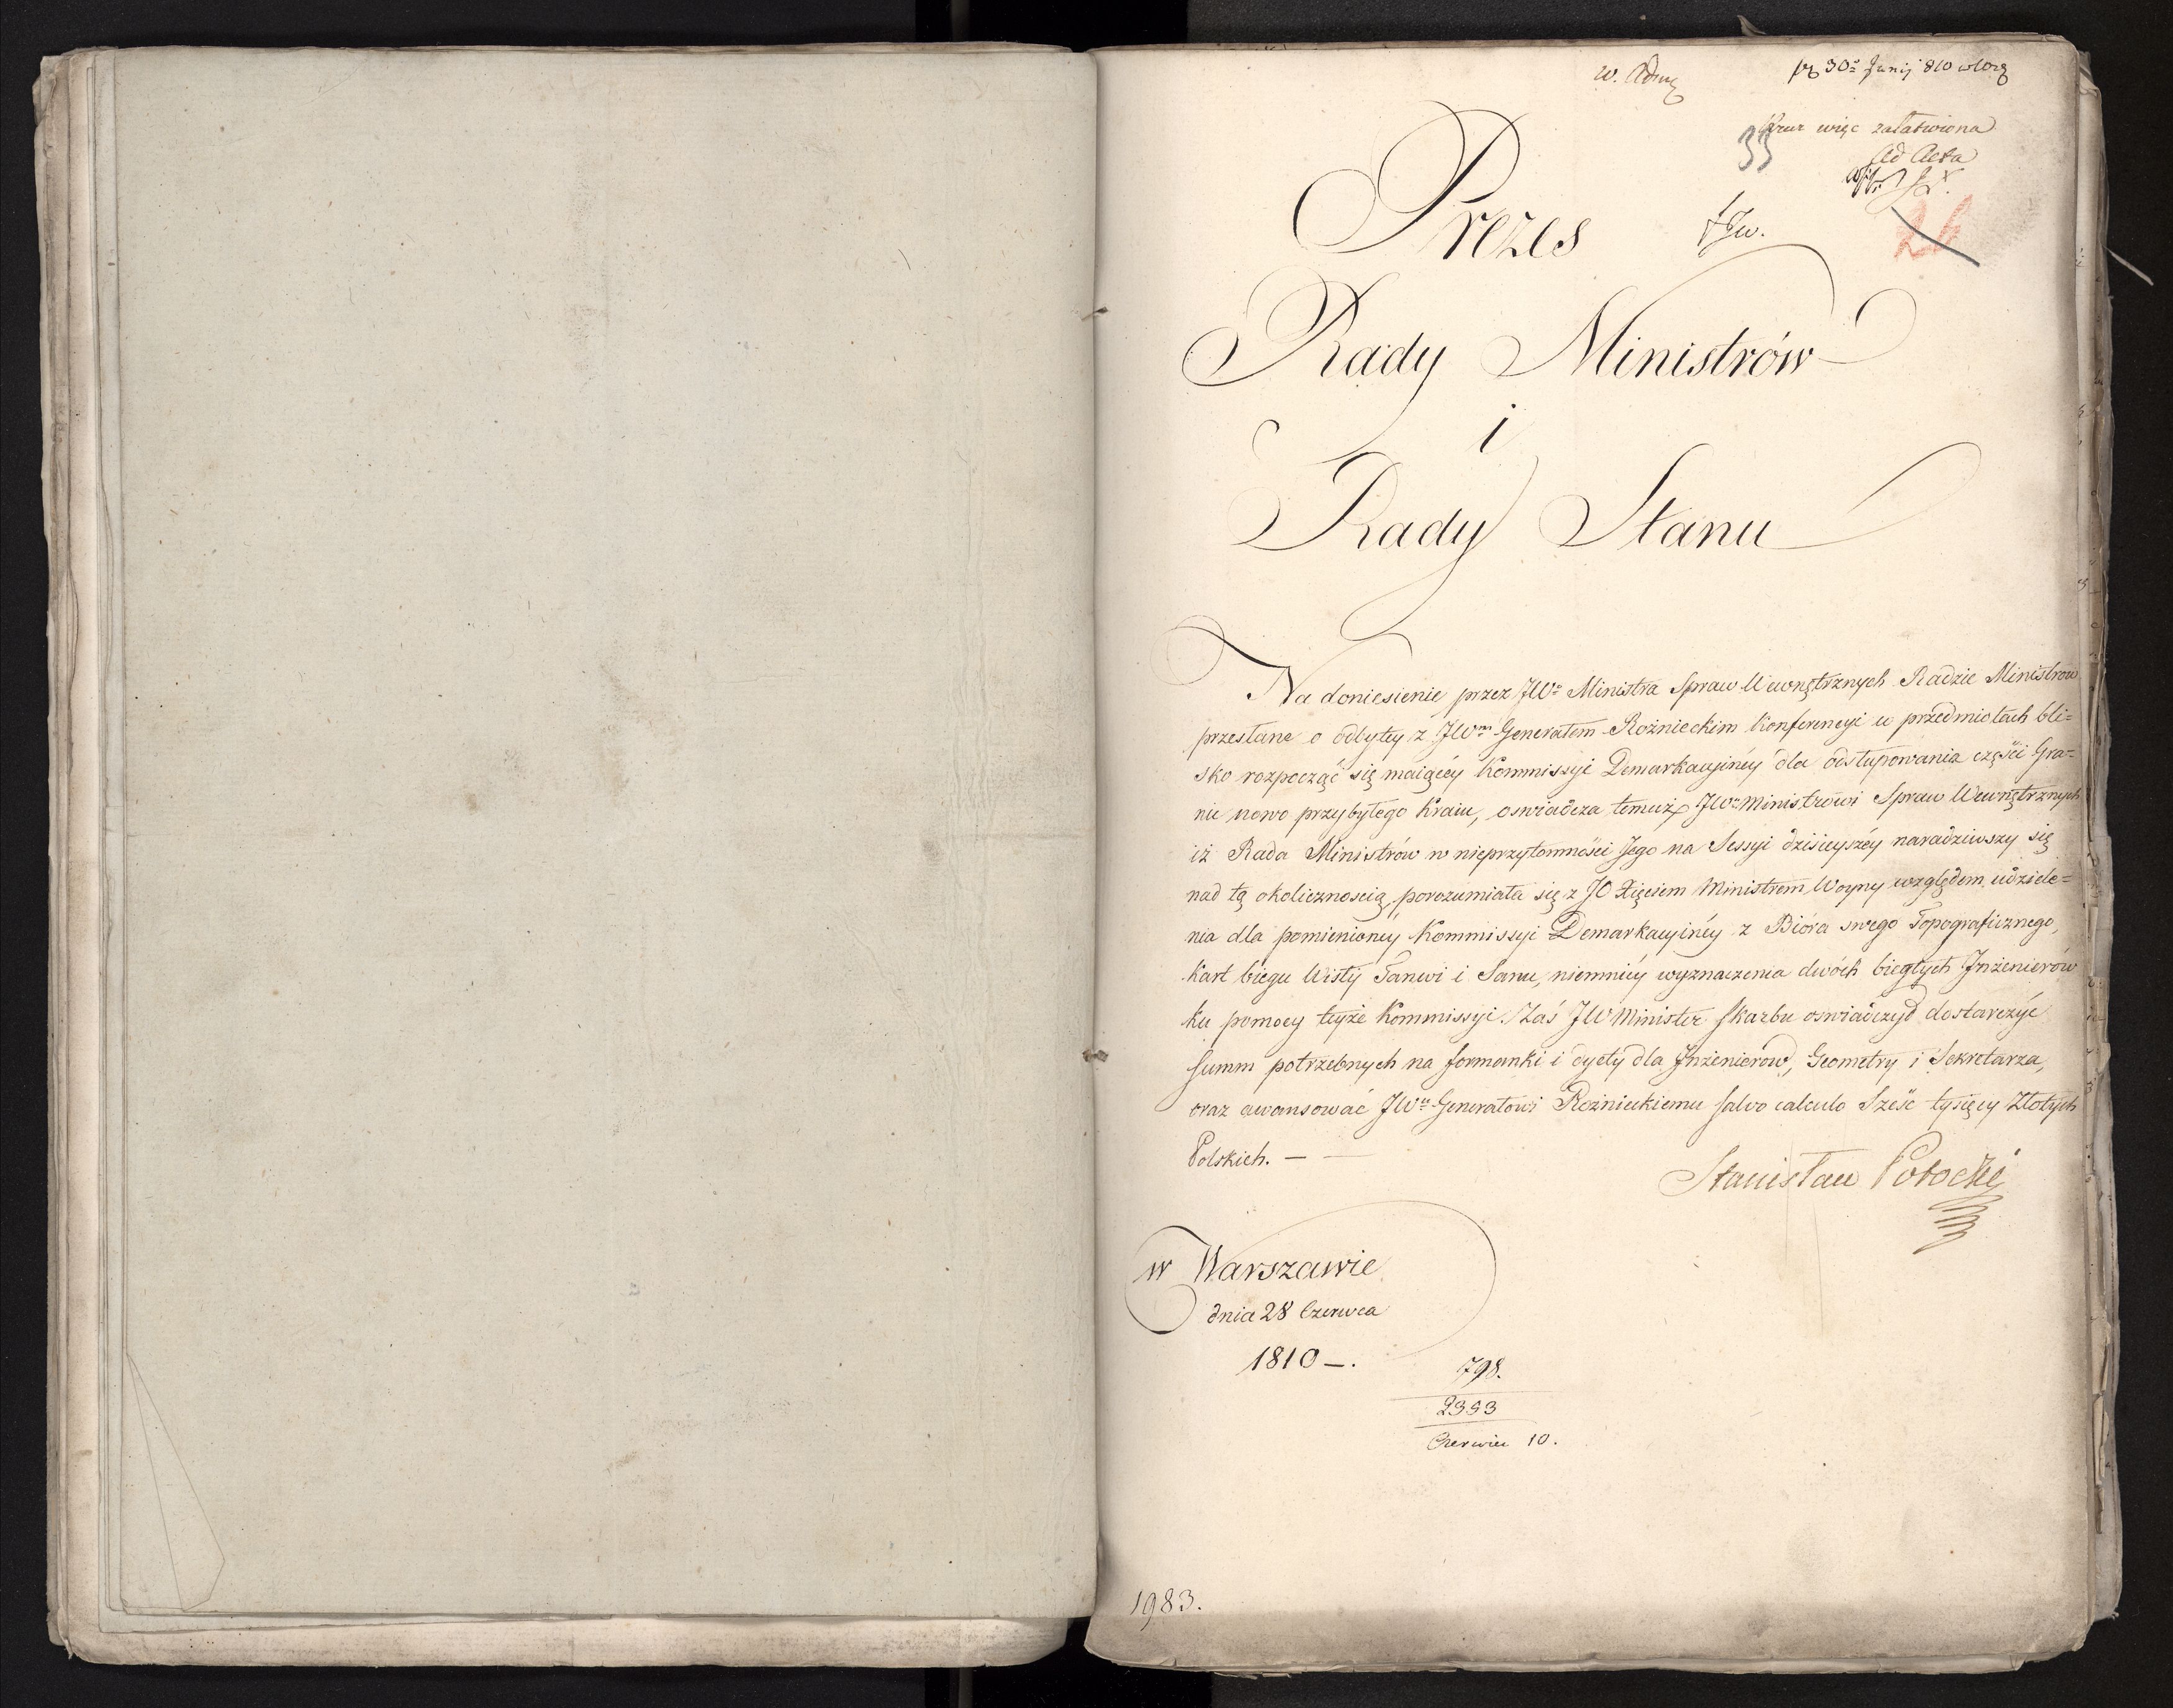 w. Adm
30 Junij 810
więc załatwiona
33
Ad Acta
24
Prezes
Rady Ministrów
i
Rady Stanu
Na doniesienie przez JWo Ministra Spraw Wewnętrznych Radzie Ministrow
przesłane o odbytey z JWm Generałem Rożnieckim Konferencyi w przedmiotach bli=
sko rozpocząć się maiącéy Kommissyi Demarkacyinéy dla odstępowania części Gra=
nic nowo przybyłego Kraiu, oswiadcza temuż JWu Ministrowi Spraw Wewnętrznych
iż Rada Ministrów w nieprzytomności Jego na Sessyi dzisieyszéy naradziwszy się
nad tą okolicznoscią, porozumiała się z JO Xięciem Ministrem Woyny względem udziele=
nia dla pomienionéy Kommissyi Demarkacyinéy z Bióra swego Topograficznego,
Kart biegu Wisły Tanwi i Sanu, niemniéy wyznaczenia dwóch biegłych Inżenierów
ku pomocy teyże Kommissyi. Zaś JW Minister Skarbu oswiadczył dostarczyć
summ potrzebnych na formanki i dyety dla Inżenierow, Geometry i Sekretarza,
oraz awansować JWu Generałowi Rożnieckiemu salvo calculo Sześć tysięcy Złotych
Polskich. —
Stanisław Potocki
w Warszawie
dnia 28 Czerwca
1810 —.
798.
2353
Czerwiec 10.
1983.